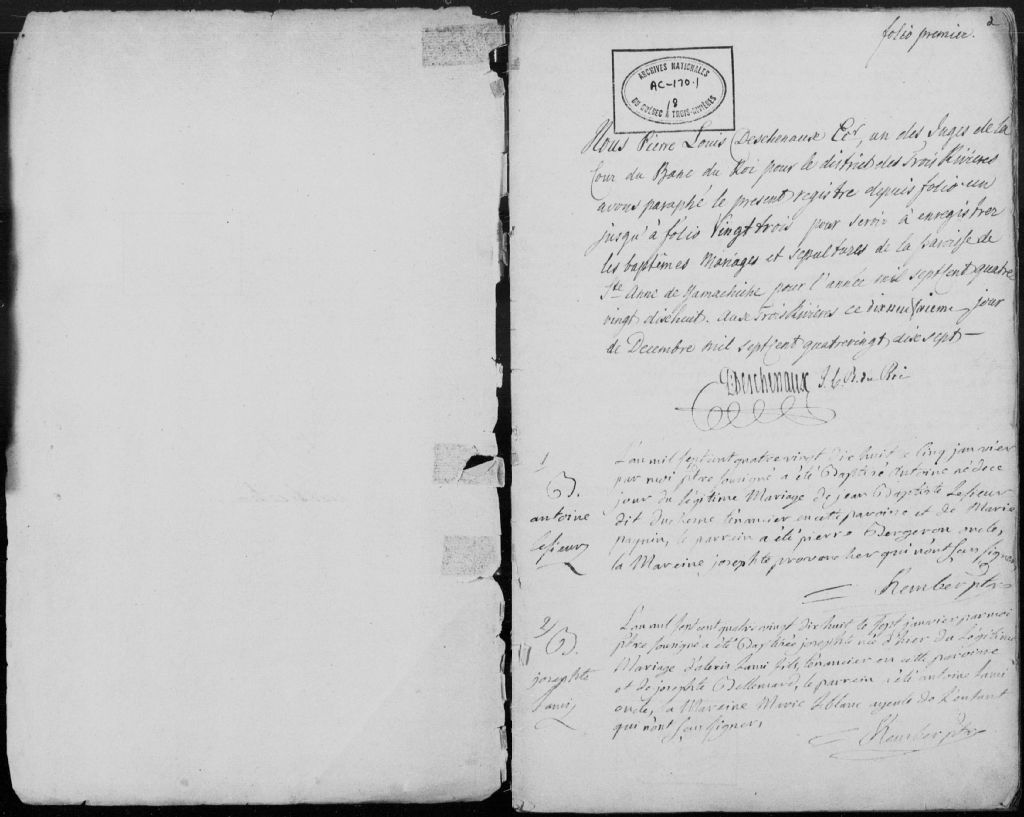 2
folio premier.
ARCHIVES NATIONALES
AC-170.1
18
DU QUÉBEC À TROIS-RIVIÈRES
Nous Pierre Louis Deschenaux Ecr, un des Juges de la
Cour du Banc du Roi pour le district des Trois Rivieres
avons paraphé le present registre depuis folio un
jusqu'à folio Vingt trois pour servir à enregistrer
les baptêmes Mariages et sepultures de la paroisse de
Ste Anne de Yamachiche pour l'année mil sept Cent quatre
vingt dixhuit. Aux Trois Rivieres ce dixneuvieme jour
de Decembre mil sept Cent quatrevingt dix sept
PDeschenaux J. C. B. du Roi
1
B.
antoine
Lesieur
L'an mil sept cent quatre vingt dix huit le cinq janvier
par moi ptre sousigné a été Baptisé antoine né de ce
jour du légitime Mariage de jean Baptiste Lesieur
dit Duchene tenancier en cette paroisse et de Marie
paquin, le parrein a été pierre Bergeron oncle,
la Mareine josephte provencher qui n'ont sçu signer
Kember ptre
2
B.
josephte
Lami
L'an mil sept cent quatre vingt dix huit le sept janvier par moi
ptre sousigné a été Baptisée josephte née d'hier du Légitime
Mariage d'alexis Lami fils, tenancier en cette paroisse
et de josephte Bellemard, le parrein a été antoine Lami
oncle, La Mareine Marie Leblanc ayeule de L'enfant
qui n'ont sçu signer,
Kember ptre